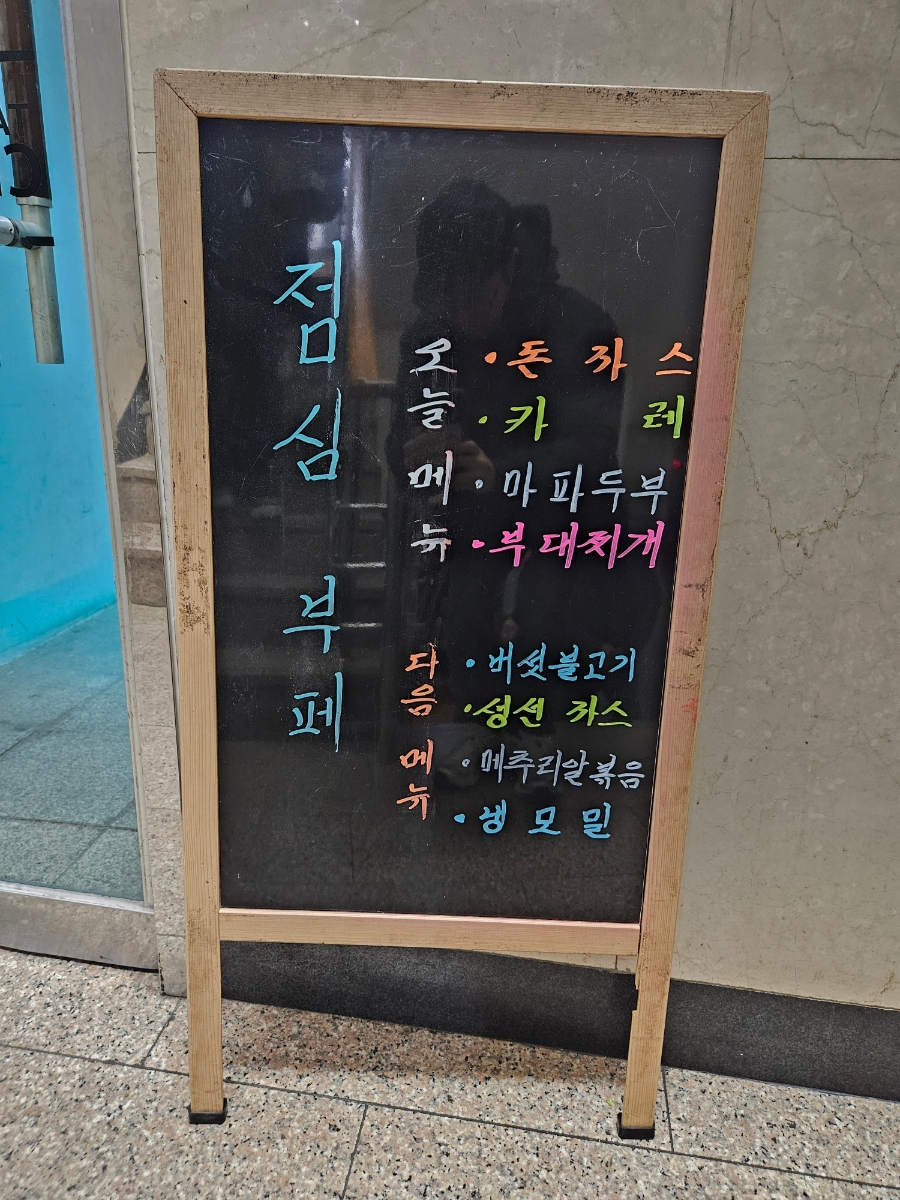 점심 부페
오늘 메뉴
·돈 까스
·카 레
·마파두부
·부대찌개
다음 메뉴
·버섯불고기
·생선 까스
·메추리알볶음
·냉 모 밀